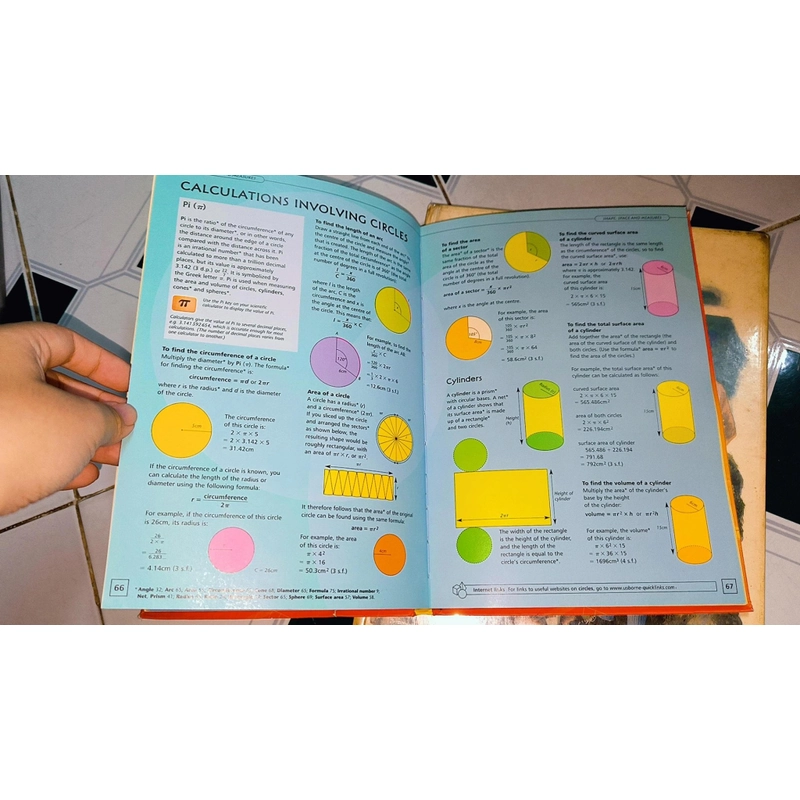 CALCULATIONS INVOLVING CIRCLES
Pi (π)
Pi is the ratio* of the circumference* of any
circle to its diameter*, or in other words,
the distance around the edge of a circle
compared with the distance across it. Pi
is an irrational number* that has been
calculated to more than a trillion decimal
places, but its value is approximately
3.142 (3 d.p.) or It is symbolized by
the Greek letter π. Pi is used when measuring
the area and volume of circles, cylinders,
cones* and spheres*.
π
Use the Pi key on your scientific
calculator to display the value of Pi.
Calculators give the value of Pi to several decimal places,
e.g. 3.141592654, which is accurate enough for most
calculations. (The number of decimal places varies from
one calculator to another.)
To find the circumference of a circle
Multiply the diameter* by Pi (π). The formula*
for finding the circumference* is:
circumference = πd or 2πr
where r is the radius* and d is the diameter
of the circle.
5cm
The circumference
of this circle is:
2 × π × 5
= 2 × 3.142 × 5
= 31.42cm
If the circumference of a circle is known, you
can calculate the length of the radius or
diameter using the following formula:
r = circumference
2π
For example, if the circumference of this circle
is 26cm, its radius is:
26
2 × π
= 26
6.283
= 4.14cm (3 s.f.)
C = 26cm
66
To find the length of an arc
Draw a straight line from each end of the arc* to
the centre of the circle and measure the angle*
that is created. The length of the arc is the
same fraction of the total circumference* as the angle
at the centre of the circle is of 360° (the total
number of degrees in a full revolution).
l = x
C 360
where l is the length
of the arc, C is the
circumference and x is
the angle at the centre of
the circle. This means that
l = x × C
360
120°
6cm
For example, to find the
length of the arc AB:
120 × C
360
= 120 × 2πr
360
= 1 × 2 × π × 6
3
= 12.6cm (3 s.f.)
Area of a circle
A circle has a radius* (r)
and a circumference* (2πr).
If you sliced up the circle
and arranged the sectors*
as shown below, the
resulting shape would be
roughly rectangular, with
an area of πr × r, or πr².
πr
r
It therefore follows that the area of the original
circle can be found using the same formula.
area = πr²
For example, the area
of this circle is:
π × 4²
= π × 16
= 50.3cm² (3 s.f.)
4cm
SHAPE, SPACE AND MEASURES
To find the area
of a sector
The area* of a sector* is the
same fraction of the total
area of the circle as the
angle at the centre of the
circle is of 360° (the total
number of degrees in a full revolution).
area of a sector = x × πr²
360
where x is the angle at the centre.
For example, the area
of this sector is:
105 × πr²
360
= 105 × π × 8²
360
= 105 × π × 64
360
= 58.6cm² (3 s.f.)
Cylinders
A cylinder is a prism*
with circular bases. A net*
of a cylinder shows that
its surface area* is made
up of a rectangle*
and two circles.
Radius (r)
Height
(h)
Height of
cylinder
2πr
The width of the rectangle
is the height of the cylinder,
and the length of the
rectangle is equal to the
circle's circumference*.
To find the curved surface area
of a cylinder
The length of the rectangle is the same length
as the circumference* of the circle, so to find
the curved surface area*, use:
area = 2πr × h or 2πrh
where π is approximately 3.142.
For example, the
curved surface area
of this cylinder is:
2 × π × 6 × 15
= 565cm² (3 s.f.)
15cm
To find the total surface area
of a cylinder
Add together the area* of the rectangle (the
area of the curved surface of the cylinder) and
both circles. (Use the formula* area = πr² to
find the area of the circles.)
For example, the total surface area* of this
cylinder can be calculated as follows.
curved surface area
2 × π × 6 × 15
= 565.486cm²
area of both circles
2 × π × 6²
= 226.194cm²
surface area of cylinder
565.486 + 226.194
= 791.68
= 792cm² (3 s.f.)
15cm
To find the volume of a cylinder
Multiply the area* of the cylinder's
base by the height
of the cylinder.
volume = πr² × h or πr²h
For example, the volume*
of this cylinder is:
π × 6² × 15
= π × 36 × 15
= 1696cm³ (4 s.f.)
15cm
Internet links For links to useful websites on circles, go to www.usborne-quicklinks.com
67
* Angle 32; Arc 65; Diameter 65; Formula 75; Irrational number 9;
Net, Prism 41; Sector 65; Sphere 69; Surface area 57; Volume 58.